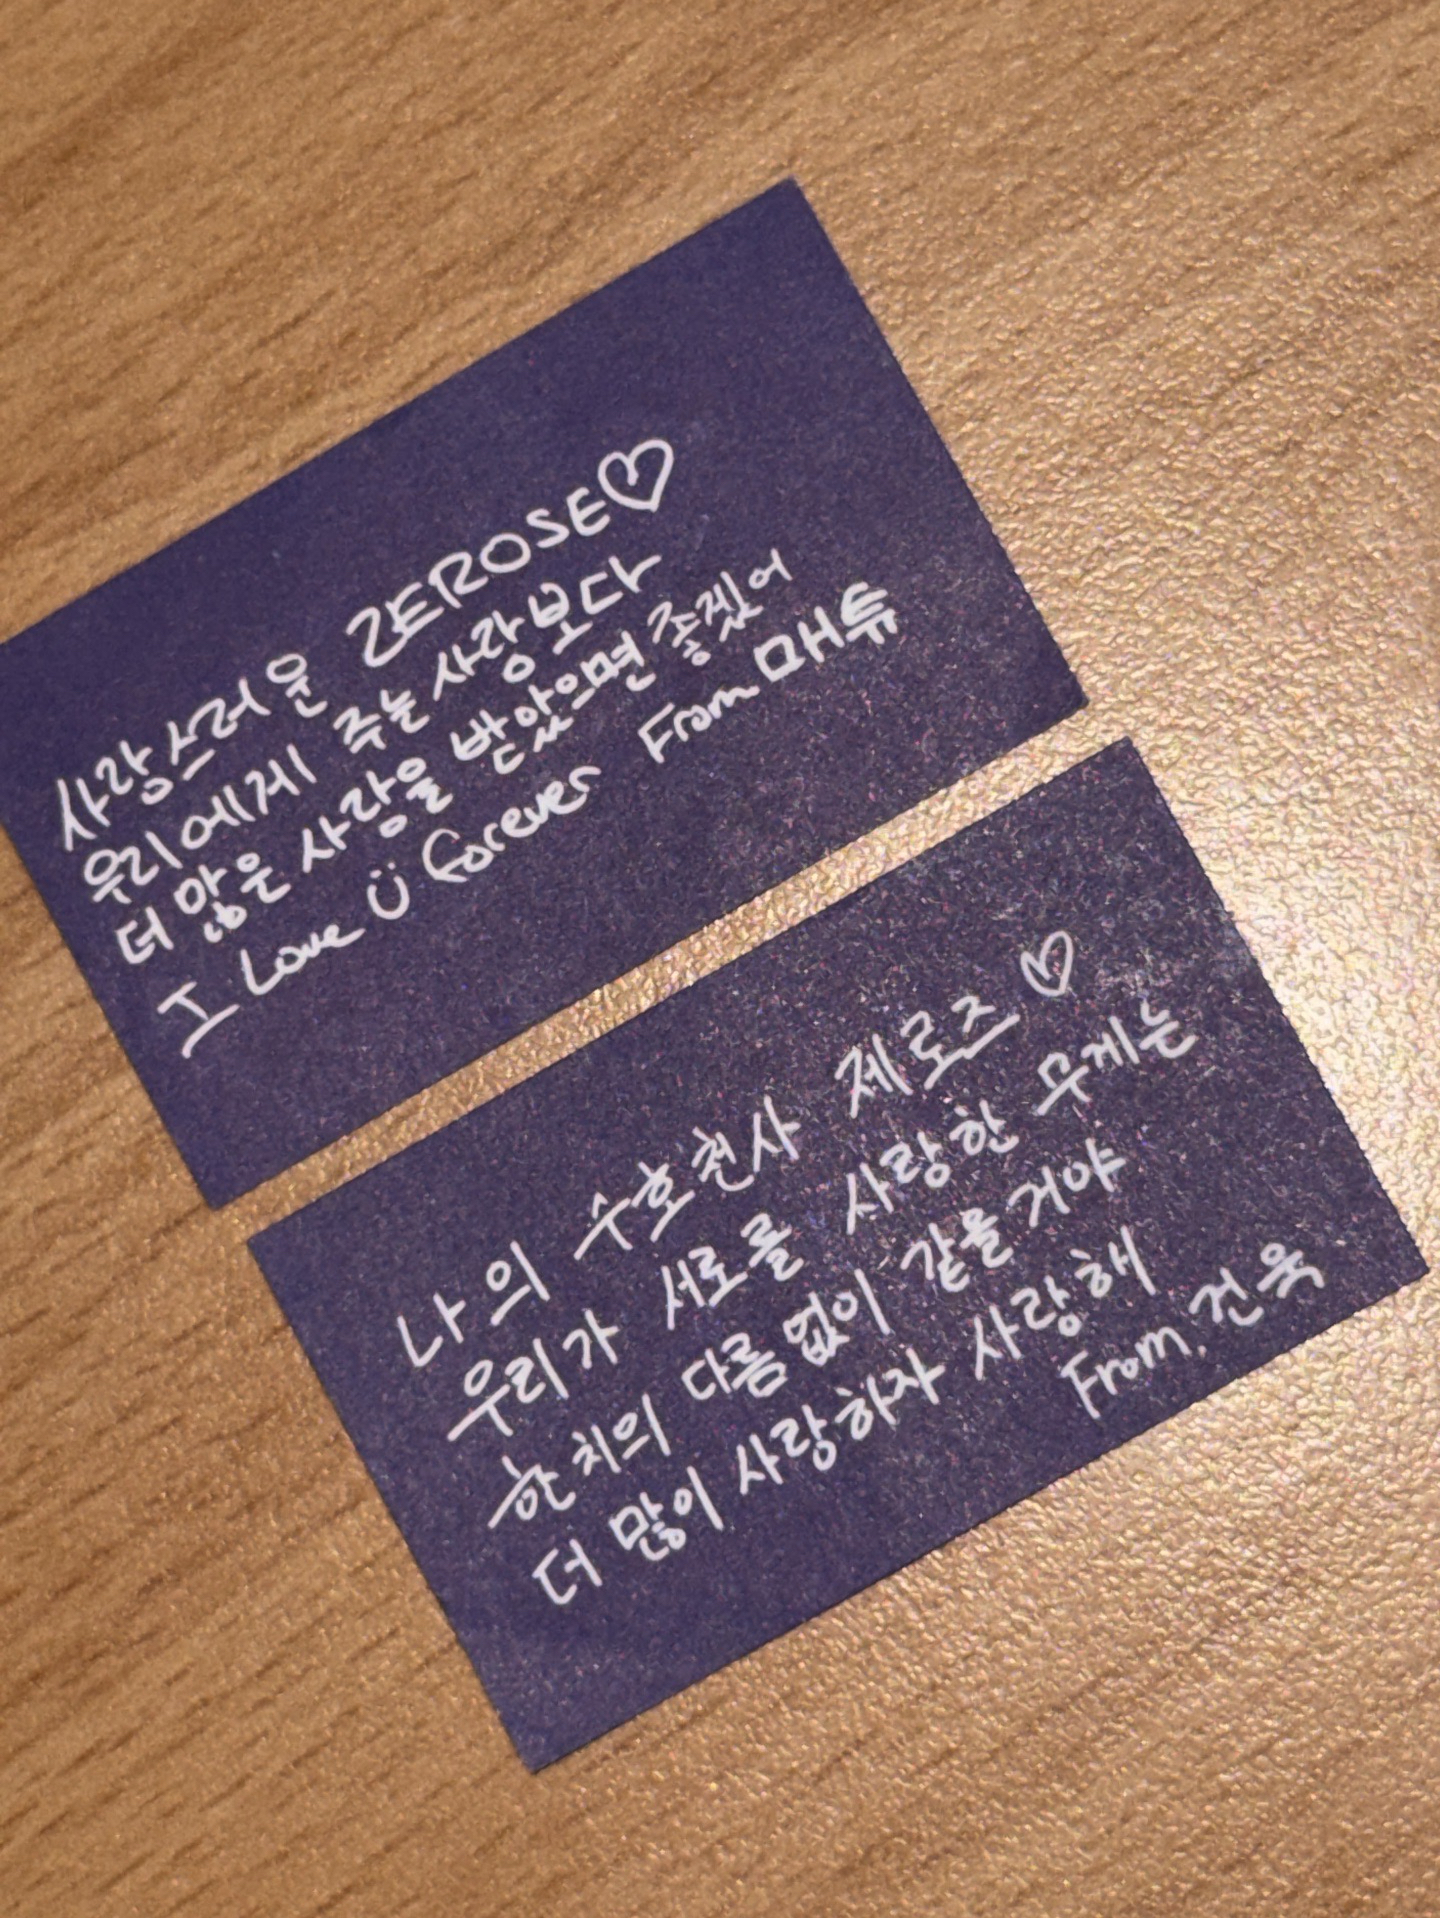 사랑스러운 ZEROSE♡
우리에게 주는 사랑보다
더 많은 사랑을 받았으면 좋겠어
I Love Ü forever From 매튜
나의 수호천사 제로즈♡
우리가 서로를 사랑한 무게는
한치의 다름없이 같을거야
더 많이 사랑하자 사랑해
From. 건욱